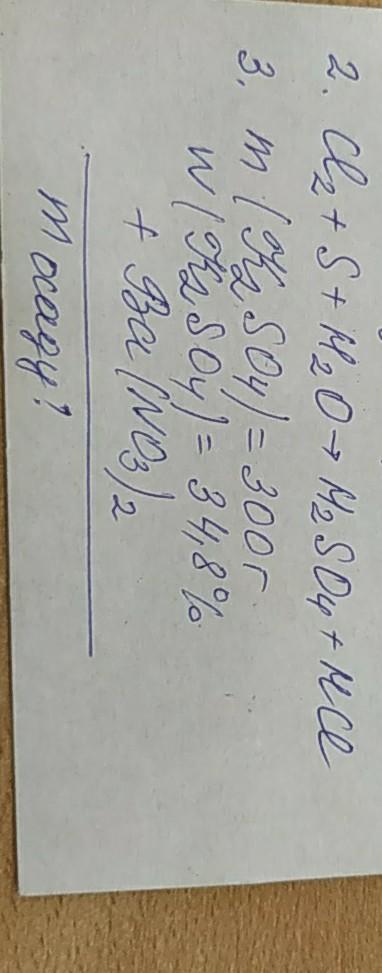 2. Cl₂ + S + H₂O → H₂SO₄ + HCl
3. m (K₂SO₄) = 300г
w (K₂SO₄) = 34,8%
+ Ba(NO₃)₂
m осаду?